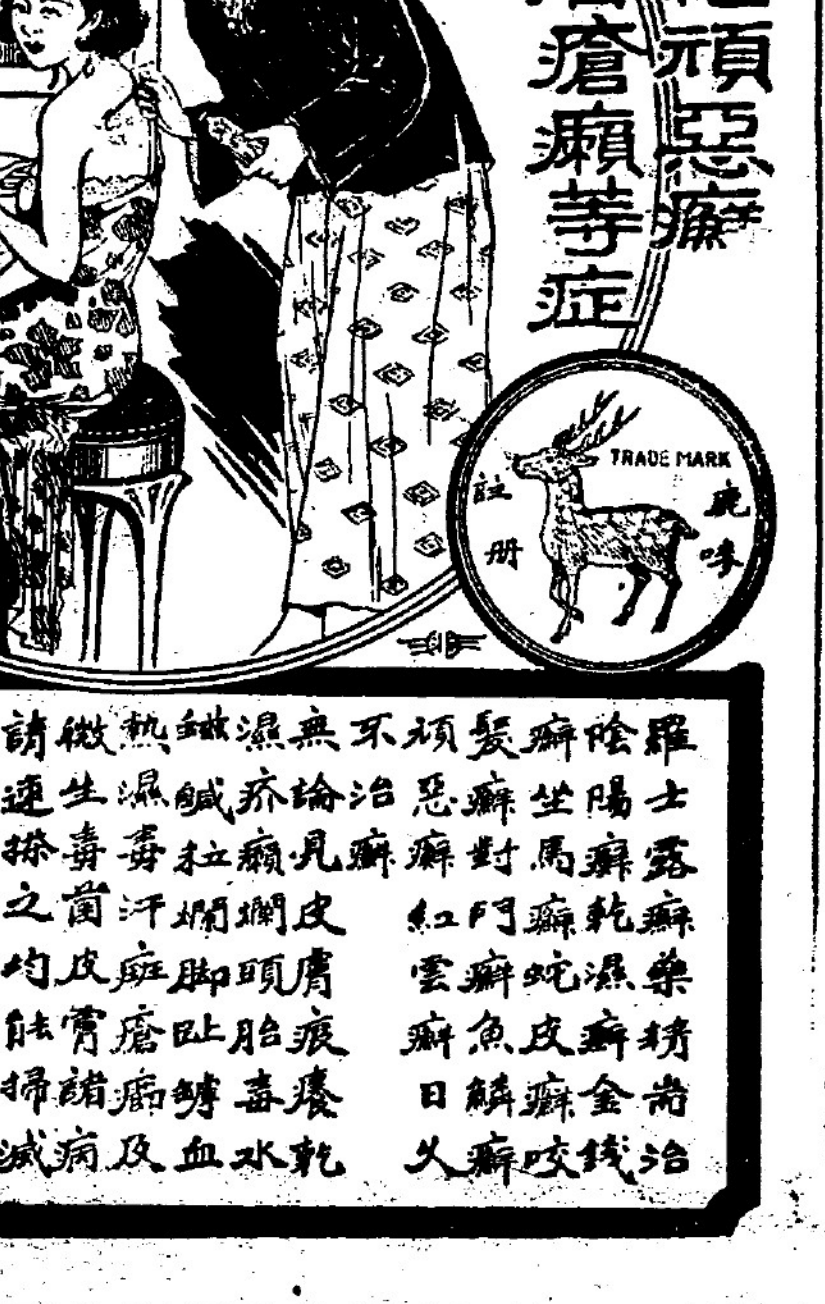 頑惡癬
瘡癩等症
TRADE MARK
鹿嘜
註册
羅士露癬藥精耑治
陰陽癬乾濕癬金錢
癬坐馬癬蛇皮癬咬
髮癬對門癬魚鱗癬
頑惡癬紅雲癬日久
不治癬
無論見皮膚痕癢乾
濕疥癩爛頭胎毒水
鹹粒爛脚趾罅血
熱濕毒汗斑瘡及
微生毒菌皮膚諸病
請速搽之均能掃滅